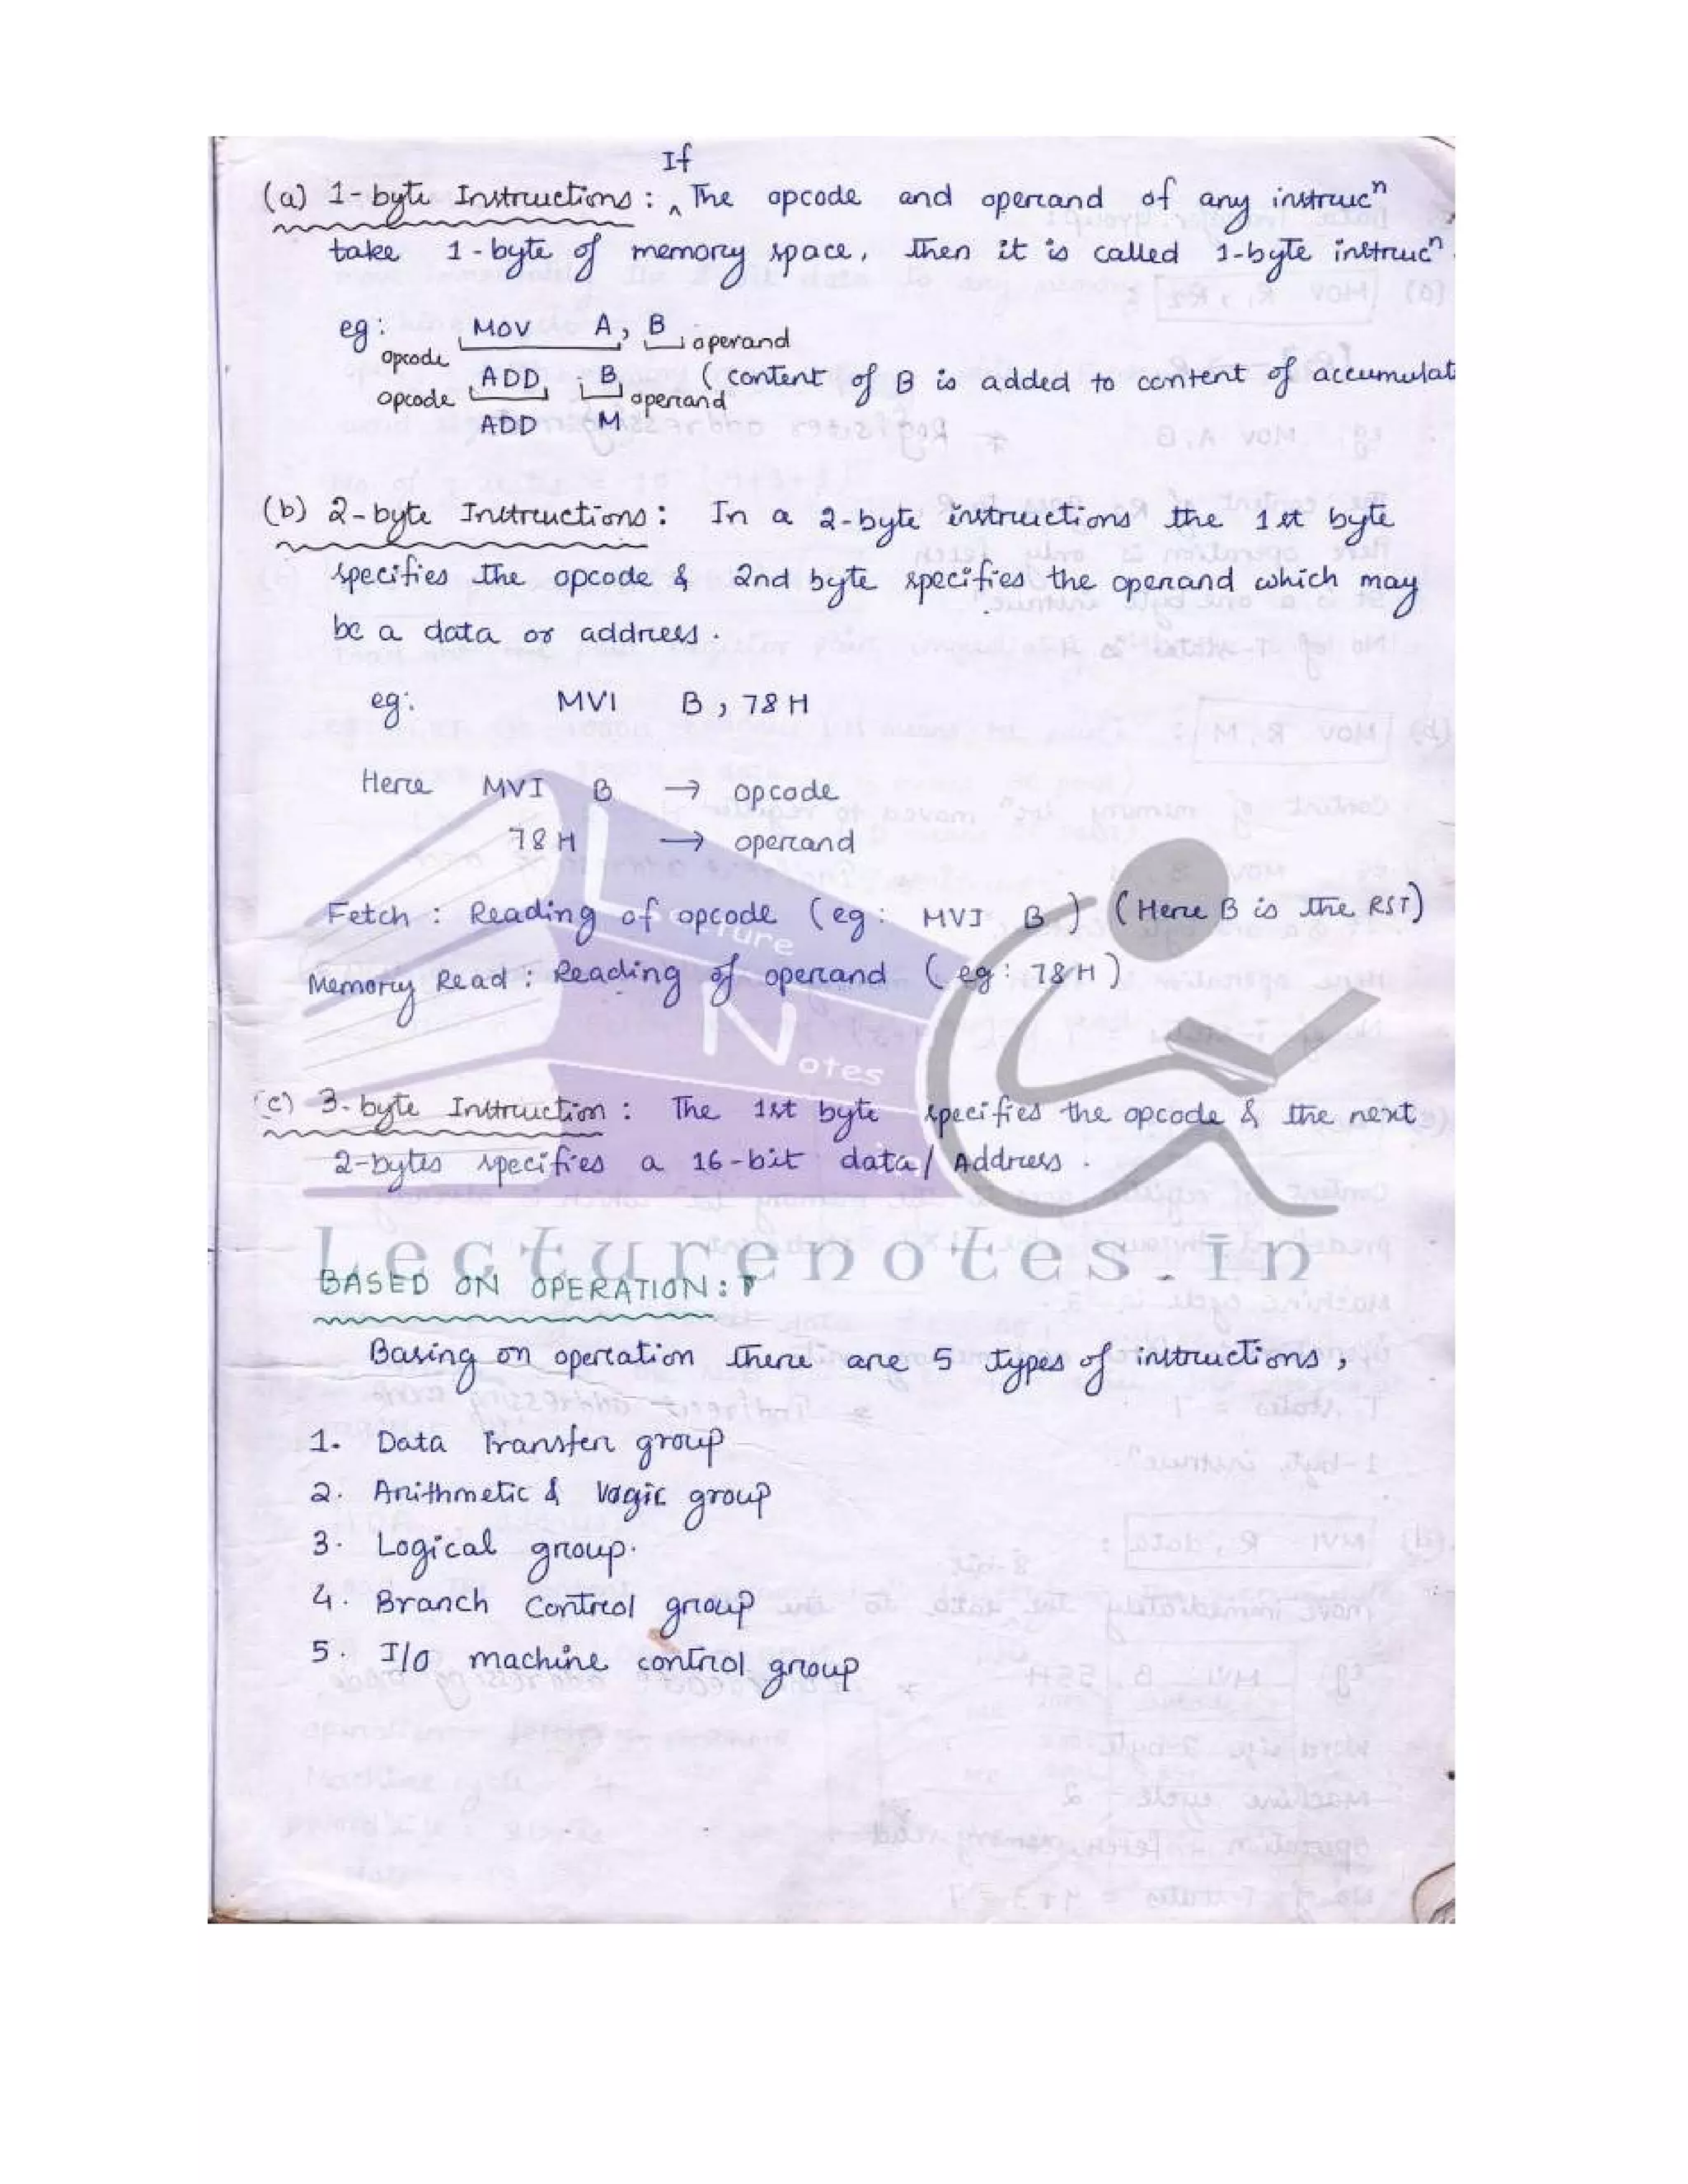 If
(a) 1-byte Instructions : ^ The opcode and operand of any instrucⁿ
take 1-byte of memory space, then it is called 1-byte instrucⁿ.
eg: MOV A, B operand
opcode
ADD B (content of B is added to content of accumulat
opcode operand
ADD M
(b) 2-byte Instructions : In a 2-byte instructions the 1st byte
specifies the opcode & 2nd byte specifies the operand which may
be a data or address.
eg: MVI B, 78H
Here MVI B → opcode
78H → operand
Fetch : Reading of opcode (eg: MVI B) (Here B is the RST)
Memory Read : Reading of operand (eg: 78H)
(c) 3-byte Instruction : The 1st byte specifies the opcode & the next
2-bytes specifies a 16-bit data/Address.
Lecture
Notes
Lecturenotes.in
BASED ON OPERATION :
Basing on operation there are 5 types of instructions,
1. Data Transfer group
2. Arithmetic & logic group
3. Logical group.
4. Branch Control group
5. I/O machine control group